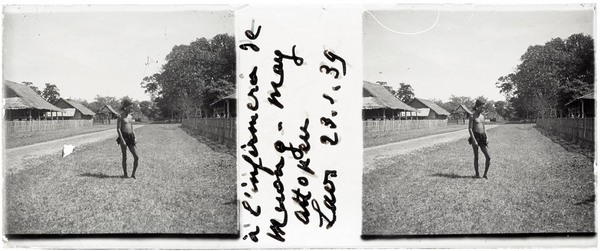 à l'infirmerie de
Muong-May
Attopeu
Laos 23.1.39